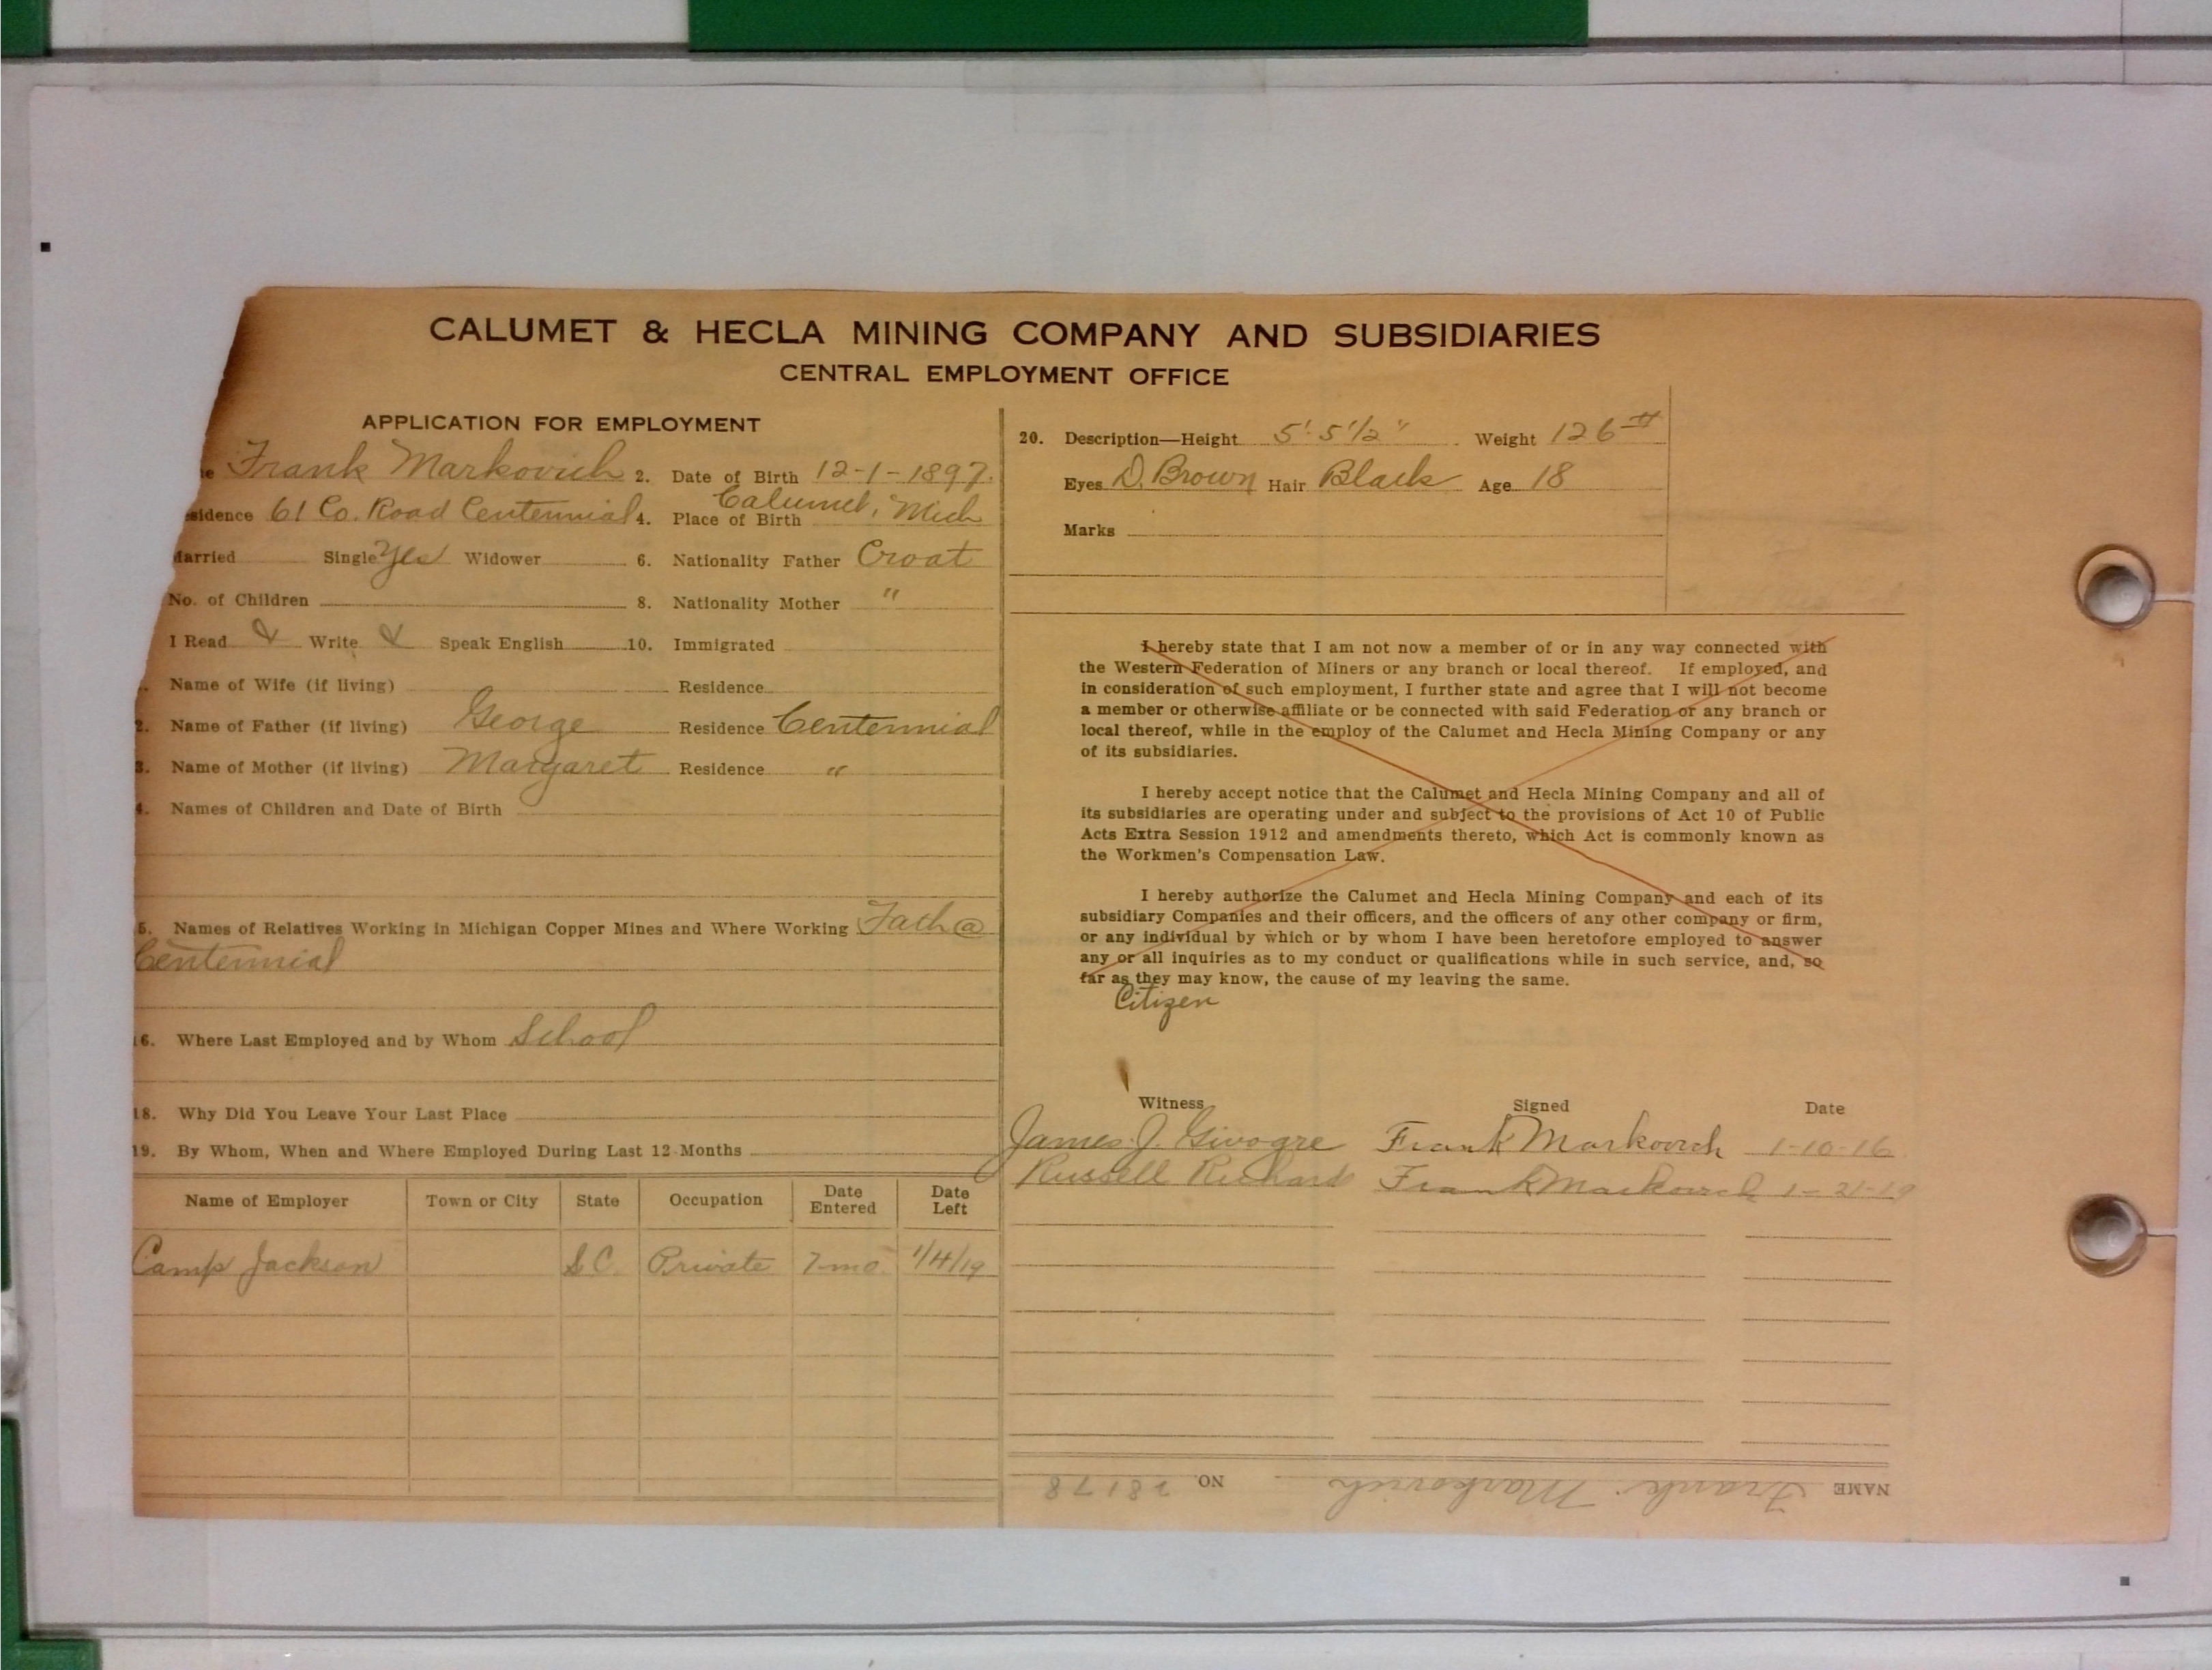 CALUMET & HECLA MINING COMPANY AND SUBSIDIARIES
CENTRAL EMPLOYMENT OFFICE
APPLICATION FOR EMPLOYMENT
e Frank Markovich 2. Date of Birth 12-1-1897.
sidence 61 Co. Road Centennial 4. Place of Birth Calumet, Mich
arried Single Yes Widower 6. Nationality Father Croat
No. of Children 8. Nationality Mother "
I Read Write Speak English 10. Immigrated
Name of Wife (if living) Residence
2. Name of Father (if living) George Residence Centennial
3. Name of Mother (if living) Margaret Residence "
4. Names of Children and Date of Birth
5. Names of Relatives Working in Michigan Copper Mines and Where Working Fath @
Centennial
16. Where Last Employed and by Whom School
18. Why Did You Leave Your Last Place
19. By Whom, When and Where Employed During Last 12 Months
Name of Employer Town or City State Occupation Date Entered Date Left
Camp Jackson S.C. Private 7 mo. 1/4/19
20. Description—Height 5' 5 1/2" Weight 126#
Eyes D. Brown Hair Black Age 18
Marks
I hereby state that I am not now a member of or in any way connected with
the Western Federation of Miners or any branch or local thereof. If employed, and
in consideration of such employment, I further state and agree that I will not become
a member or otherwise affiliate or be connected with said Federation or any branch or
local thereof, while in the employ of the Calumet and Hecla Mining Company or any
of its subsidiaries.
I hereby accept notice that the Calumet and Hecla Mining Company and all of
its subsidiaries are operating under and subject to the provisions of Act 10 of Public
Acts Extra Session 1912 and amendments thereto, which Act is commonly known as
the Workmen's Compensation Law.
I hereby authorize the Calumet and Hecla Mining Company and each of its
subsidiary Companies and their officers, and the officers of any other company or firm,
or any individual by which or by whom I have been heretofore employed to answer
any or all inquiries as to my conduct or qualifications while in such service, and, so
far as they may know, the cause of my leaving the same.
Citizen
Witness Signed Date
James J. Givogre Frank Markovich 1-10-16
Russell Richard Frank Markovich 1-21-19
NAME Frank Markovich NO. 28178